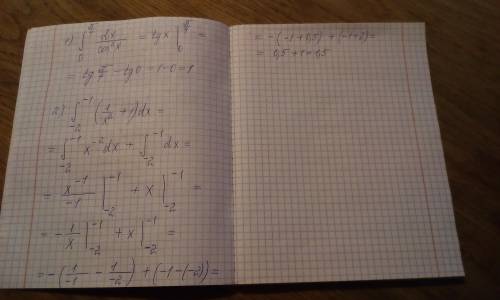 1) ∫₀^{π/4} dx/cos²x = tg x |₀^{π/4} =
= tg π/4 - tg 0 = 1 - 0 = 1
2) ∫₋₂^{-1} (1/x² + 1) dx =
= ∫₋₂^{-1} x^{-2} dx + ∫₋₂^{-1} dx =
= x^{-1}/-1 |₋₂^{-1} + x |₋₂^{-1} =
= - 1/x |₋₂^{-1} + x |₋₂^{-1} =
= - (1/-1 - 1/-2) + (-1 - (-2)) =
= - (-1 + 0,5) + (-1 + 2) =
= 0,5 + 1 = 1,5